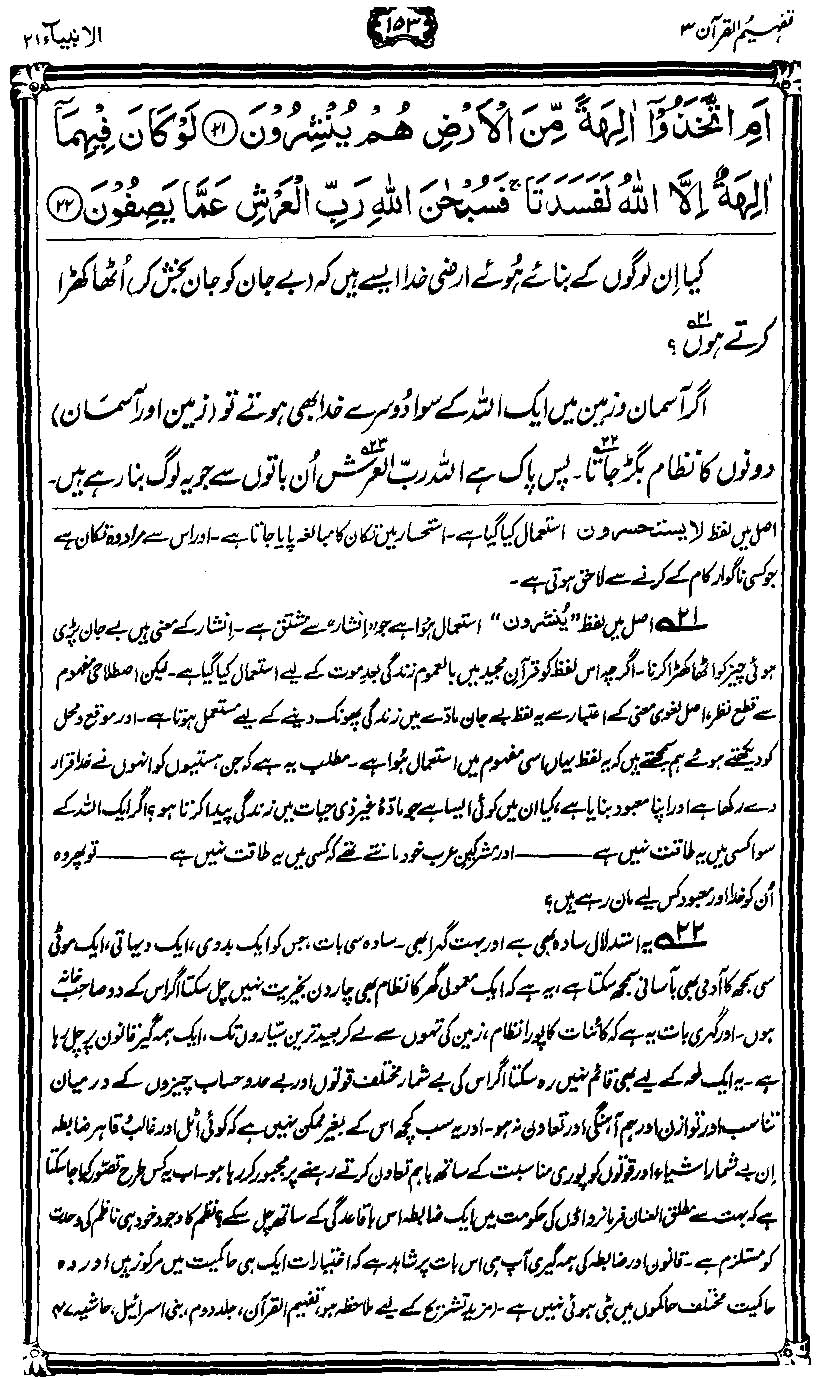 تفہیم القرآن ۳
۱۵۳
الانبیاء ۲۱
اَمِ اتَّخَذُوْٓا اٰلِهَةً مِّنَ الْاَرْضِ هُمْ يُنْشِرُوْنَ ﴿۲۱﴾ لَوْ كَانَ فِيْهِمَآ
اٰلِهَةٌ اِلَّا اللّٰهُ لَفَسَدَتَا ۚ فَسُبْحٰنَ اللّٰهِ رَبِّ الْعَرْشِ عَمَّا يَصِفُوْنَ ﴿۲۲﴾
کیا اِن لوگوں کے بنائے ہُوئے ارضی خدا ایسے ہیں کہ (بے جان کو جان بخش کر) اُٹھا کھڑا
کرتے ہوں۲۱؟
اگر آسمان و زمین میں ایک اللہ کے سوا دُوسرے خدا بھی ہوتے تو (زمین اور آسمان)
دونوں کا نظام بگڑ جاتا۲۲۔ پس پاک ہے اللہ ربّ العرش۲۳ اُن باتوں سے جو یہ لوگ بنا رہے ہیں۔
اصل میں لفظ لا یستحسرون استعمال کیا گیا ہے۔ استحسار میں تکان کا مبالغہ پایا جاتا ہے۔ اور اس سے مراد وہ تکان ہے
جو کسی ناگوار کام کے کرنے سے لاحق ہوتی ہے۔
۲۱ اصل میں لفظ ”یُنشرون“ استعمال ہُوا ہے جو ”اِنشار“ سے مشتق ہے۔ اِنشار کے معنی ہیں بے جان پڑی
ہوئی چیز کو اٹھا کھڑا کرنا۔ اگرچہ اس لفظ کو قرآن مجید میں بالعموم زندگی بعدِ موت کے لیے استعمال کیا گیا ہے۔ لیکن اصطلاحی مفہوم
سے قطع نظر، اصل لغوی معنی کے اعتبار سے یہ لفظ بے جان مادّے میں زندگی پھونک دینے کے لیے مستعمل ہوتا ہے۔ اور موقع و محل
کو دیکھتے ہوئے ہم سمجھتے ہیں کہ یہ لفظ یہاں اسی مفہوم میں استعمال ہُوا ہے۔ مطلب یہ ہے کہ جن ہستیوں کو انہوں نے خدا قرار
دے رکھا ہے اور اپنا معبود بنایا ہے، کیا ان میں کوئی ایسا ہے جو مادّۂ غیر ذی حیات میں زندگی پیدا کرتا ہو؟ اگر ایک اللہ کے
سوا کسی میں یہ طاقت نہیں ہے ——— اور مشرکینِ عرب خود مانتے تھے کہ کسی میں یہ طاقت نہیں ہے ——— تو پھر وہ
اُن کو خدا اور معبود کس لیے مان رہے ہیں؟
۲۲ یہ استدلال سادہ بھی ہے اور بہت گہرا بھی۔ سادہ سی بات، جس کو ایک بدوی، ایک دیہاتی، ایک موٹی
سی سمجھ کا آدمی بھی بآسانی سمجھ سکتا ہے، یہ ہے کہ ایک معمولی گھر کا نظام بھی چار دن بخیریت نہیں چل سکتا اگر اس کے دو صاحب خانہ
ہوں۔ اور گہری بات یہ ہے کہ کائنات کا پورا نظام، زمین کی تہوں سے لے کر بعید ترین سیاروں تک، ایک ہمہ گیر قانون پر چل رہا
ہے۔ یہ ایک لمحہ کے لیے بھی قائم نہیں رہ سکتا اگر اس کی بے شمار مختلف قوتوں اور بے حد و حساب چیزوں کے درمیان
تناسب اور توازن اور ہم آہنگی اور تعاون نہ ہو۔ اور یہ سب کچھ اس کے بغیر ممکن نہیں ہے کہ کوئی اٹل اور غالب و قاہر ضابطہ
اِن بے شمار اشیاء اور قوتوں کو پوری مناسبت کے ساتھ باہم تعاون کرتے رہنے پر مجبور کر رہا ہو۔ اب یہ کس طرح تصوّر کیا جا سکتا
ہے کہ بہت سے مطلق العنان فرمانرواؤں کی حکومت میں ایک ضابطہ اس باقاعدگی کے ساتھ چل سکے؟ نظم کا وجود خود ہی ناظم کی وحدت
کو مستلزم ہے۔ قانون اور ضابطہ کی ہمہ گیری آپ ہی اس بات پر شاہد ہے کہ اختیارات ایک ہی حاکمیت میں مرکوز ہیں اور وہ
حاکمیت مختلف حاکموں میں بٹی ہوئی نہیں ہے۔ (مزید تشریح کے لیے ملاحظہ ہو، تفہیم القرآن، جلد دوم، بنی اسرائیل، حاشیہ ۴۷